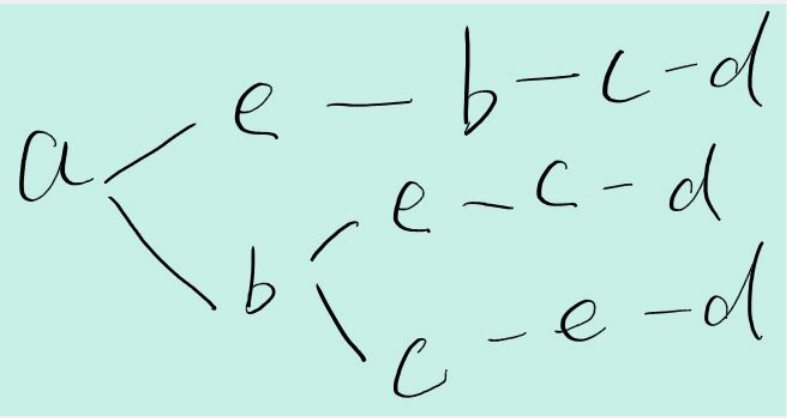 a e - b - c - d
e - c - d
b
c - e - d